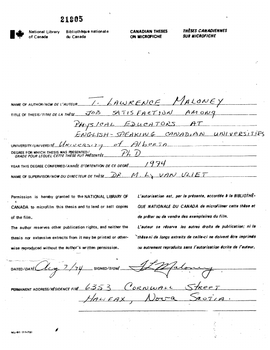 21805
National Library of Canada
Bibliothèque nationale du Canada
CANADIAN THESES ON MICROFICHE
THÈSES CANADIENNES SUR MICROFICHE
NAME OF AUTHOR/NOM DE L'AUTEUR T. LAWRENCE MALONEY
TITLE OF THESIS/TITRE DE LA THÈSE JOB SATISFACTION AMONG
PHYSICAL EDUCATORS AT
ENGLISH-SPEAKING CANADIAN UNIVERSITIES
UNIVERSITY/UNIVERSITÉ University of Alberta
DEGREE FOR WHICH THESIS WAS PRESENTED/
GRADE POUR LEQUEL CETTE THÈSE FUT PRÉSENTÉE PhD
YEAR THIS DEGREE CONFERRED/ANNÉE D'OBTENTION DE CE DEGRÉ 1974
NAME OF SUPERVISOR/NOM DU DIRECTEUR DE THÈSE DR M. L. VAN VLIET
Permission is hereby granted to the NATIONAL LIBRARY OF
CANADA to microfilm this thesis and to lend or sell copies
of the film.
The author reserves other publication rights, and neither the
thesis nor extensive extracts from it may be printed or other-
wise reproduced without the author's written permission.
L'autorisation est, par la présente, accordée à la BIBLIOTHÈ-
QUE NATIONALE DU CANADA de microfilmer cette thèse et
de prêter ou de vendre des exemplaires du film.
L'auteur se réserve les autres droits de publication; ni la
thèse ni de longs extraits de celle-ci ne doivent être imprimés
ou autrement reproduits sans l'autorisation écrite de l'auteur.
DATED/DATÉ Aug 7/74 SIGNED/SIGNÉ T L Maloney
PERMANENT ADDRESS/RÉSIDENCE FIXE 6353 CORNWALL STREET
HALIFAX, NOVA SCOTIA.